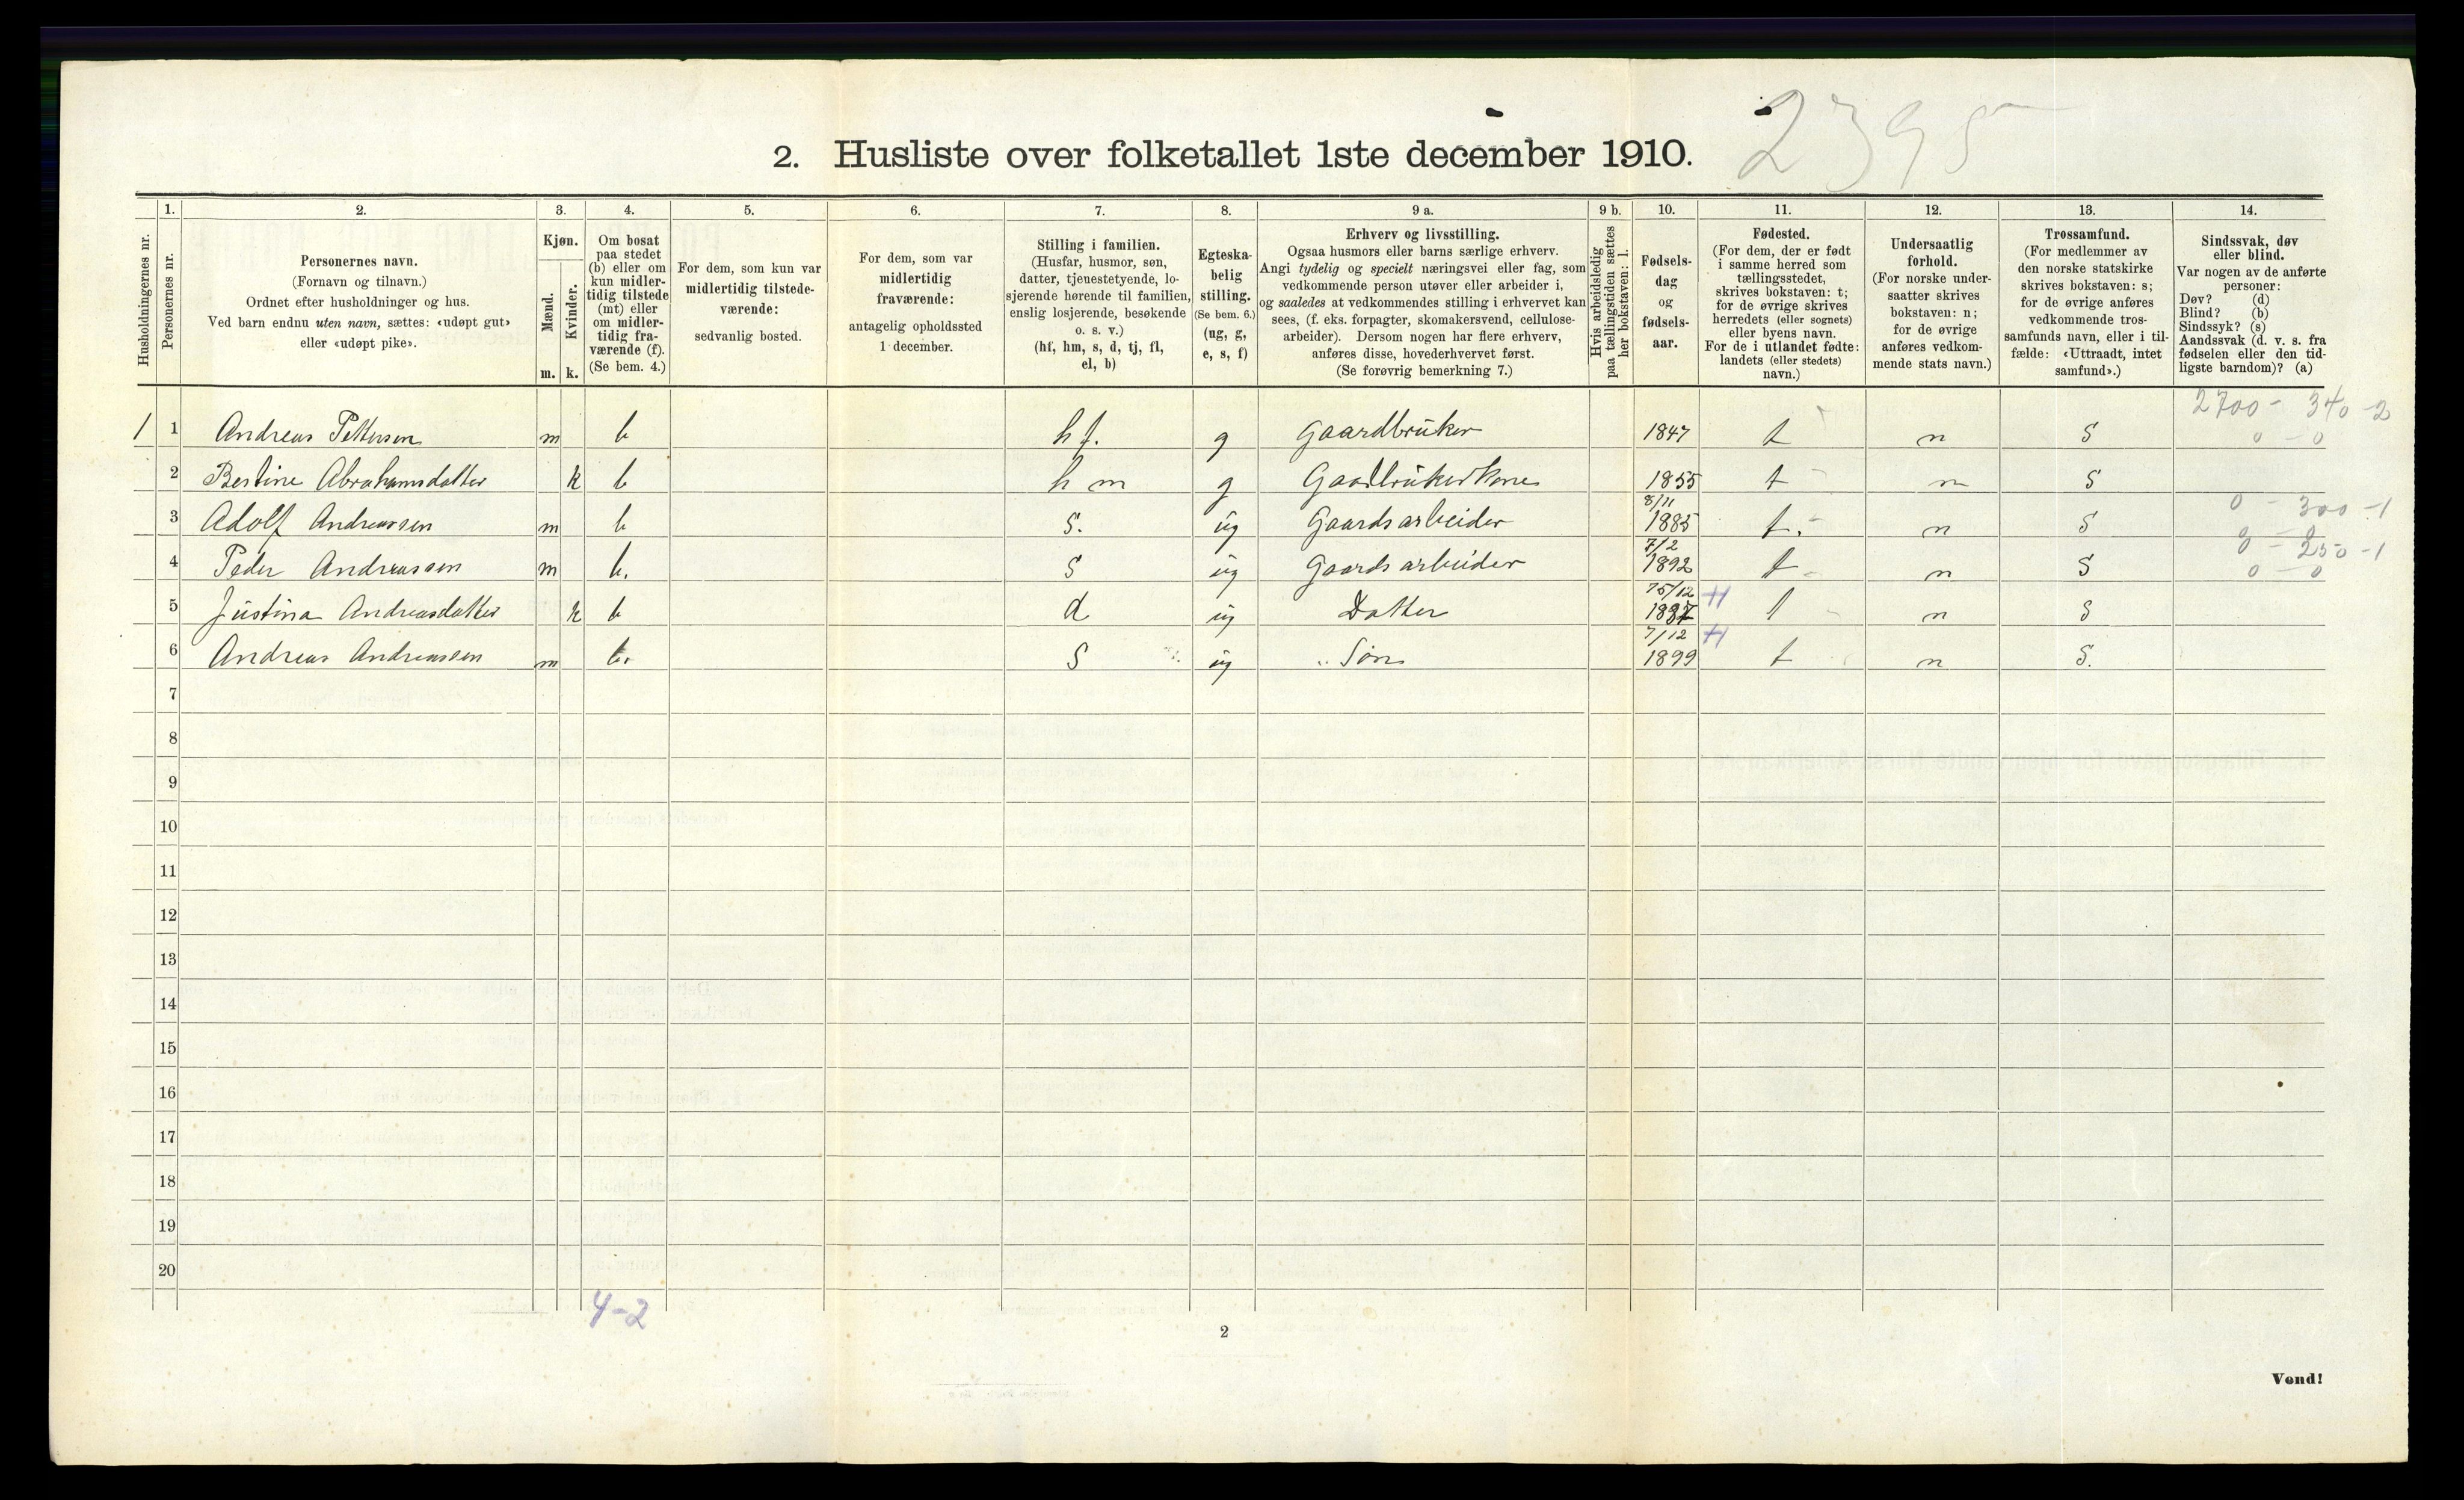 2395
2. Husliste over folketallet 1ste december 1910.
Husholdningernes nr.
1. Personernes nr.
2. Personernes navn.
(Fornavn og tilnavn.)
Ordnet efter husholdninger og hus.
Ved barn endnu uten navn, sættes: «udøpt gut»
eller «udøpt pike».
3. Kjøn.
Mænd. m.
Kvinder. k.
4. Om bosat
paa stedet
(b) eller om
kun midler-
tidig tilstede
(mt) eller
om midler-
tidig fra-
værende (f).
(Se bem. 4.)
5. For dem, som kun var
midlertidig tilstede-
værende:
sedvanlig bosted.
6. For dem, som var
midlertidig
fraværende:
antagelig opholdssted
1 december.
7. Stilling i familien.
(Husfar, husmor, søn,
datter, tjenestetyende, lo-
sjerende hørende til familien,
enslig losjerende, besøkende
o. s. v.)
(hf, hm, s, d, tj, fl,
el, b)
8. Egteska-
belig
stilling.
(Se bem. 6.)
(ug, g,
e, s, f)
9 a. Erhverv og livsstilling.
Ogsaa husmors eller barns særlige erhverv.
Angi tydelig og specielt næringsvei eller fag, som
vedkommende person utøver eller arbeider i,
og saaledes at vedkommendes stilling i erhvervet kan
sees, (f. eks. forpagter, skomakersvend, cellulose-
arbeider). Dersom nogen har flere erhverv,
anføres disse, hovederhvervet først.
(Se forøvrig bemerkning 7.)
9 b. Hvis arbeidsledig
paa tællingstiden sættes
her bokstaven: l.
10. Fødsels-
dag
og
fødsels-
aar.
11. Fødested.
(For dem, der er født
i samme herred som
tællingsstedet,
skrives bokstaven: t;
for de øvrige skrives
herredets (eller sognets)
eller byens navn.
For de i utlandet fødte:
landets (eller stedets)
navn.)
12. Undersaatlig
forhold.
(For norske under-
saatter skrives
bokstaven: n;
for de øvrige
anføres vedkom-
mende stats navn.)
13. Trossamfund.
(For medlemmer av
den norske statskirke
skrives bokstaven: s;
for de øvrige anføres
vedkommende tros-
samfunds navn, eller i til-
fælde: «Uttraadt, intet
samfund».)
14. Sindssvak, døv
eller blind.
Var nogen av de anførte
personer:
Døv? (d)
Blind? (b)
Sindssyk? (s)
Aandssvak (d. v. s. fra
fødselen eller den tid-
ligste barndom)? (a)
2700 - 340 - 2
1 1 Andreas Pettersen m b hf. g Gaardbruker 1847 t n S 0 - 0
2 Bertine Abrahamsdatter k b hm g Gaardbrukerkone 1855 t n S
8/11 0 - 300 - 1
3 Adolf Andreassen m b S. ug Gaardsarbeider 1885 t. n S 0 - 0
7/2 0 - 250 - 1
4 Peder Andreassen m b. S ug Gaardsarbeider 1892 t n S 0 - 0
5 Justina Andreasdatter k b d ug Datter 15/12 t n S
7/12
6 Andreas Andreassen m b. S ug Søn 1899 t n S.
7
8
9
10
11
12
13
14
15
16
17
18
19
20
4-2
2
Vend!